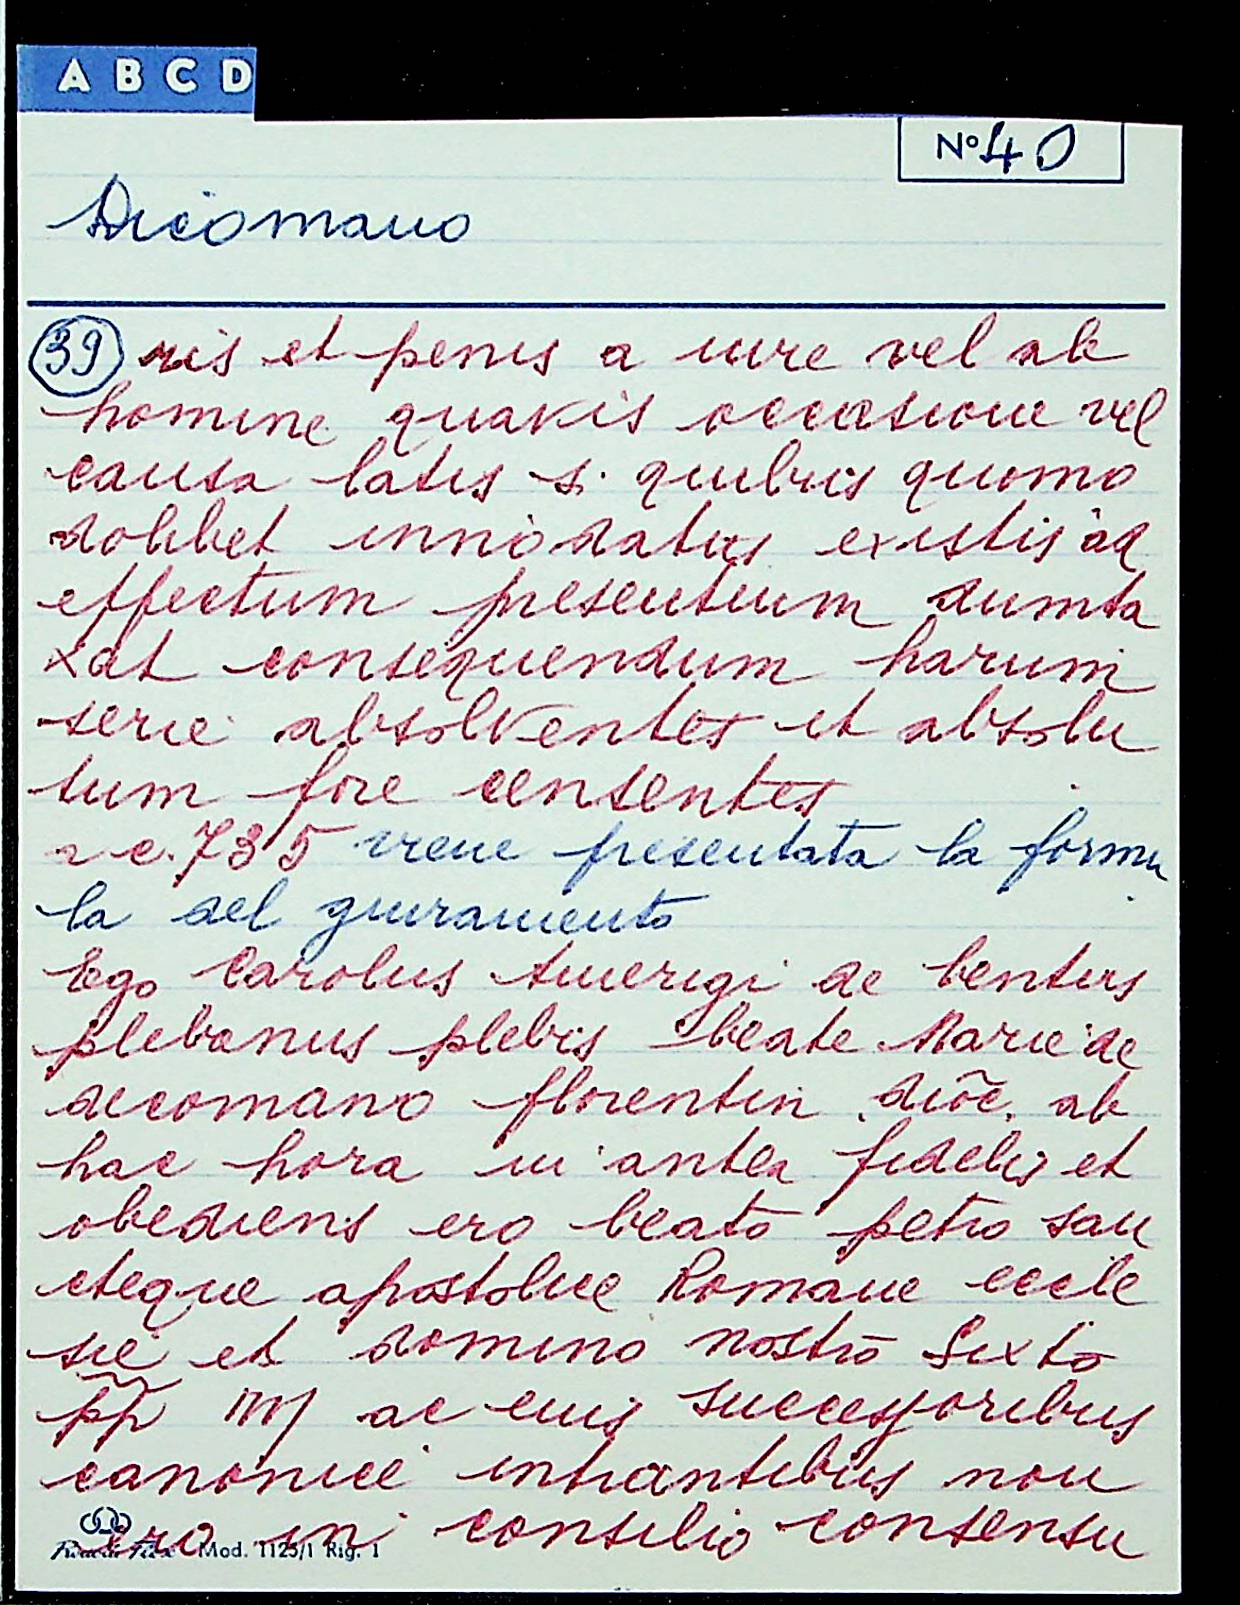 A B C D
N° 40
Dicomano
39 ris et penis a iure vel ab
homine quavis occasione vel
causa latis s. quibus quomo
dolibet innodatus existis ad
effectum presentium dumta
xat consequendum harum
serie absolventes et absolu
tum fore censentes
a c. 735 viene presentata la formu
la del giuramento
Ego Carolus Amerigi de bentiis
plebanus plebis beate Marie de
decomano florentin dioc̃. ab
hac hora in antea fidelis et
obediens ero beato petro san
cteque apostolice Romane eccle
sie et domino nostro Sixto
pp̃ IIII ac eius successoribus
canonice intrantibus non
ero in consilio consensu
Mod. 1125/1 Rig. 1